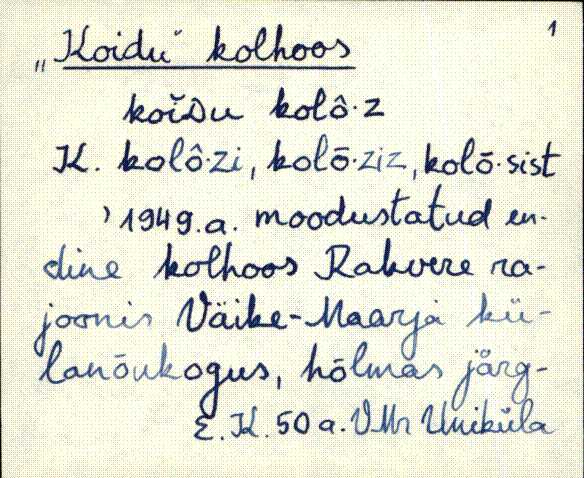 1
„Koidu" kolhoos
koĭDu kolô·z
K. kolô·zi, kolō·ziz, kolō·sist
’1949.a. moodustatud en-
dine kolhoos Rakvere ra-
joonis Väike-Maarja kü-
lanõukogus, hõlmas järg-
E.K. 50 a. VMr Uniküla